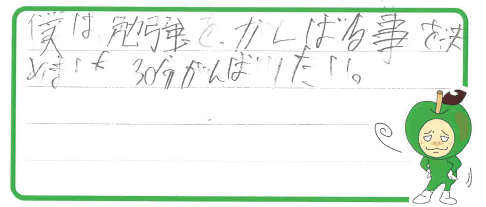 僕は勉強をがんばる事を決
めました 30分がんばりたい。